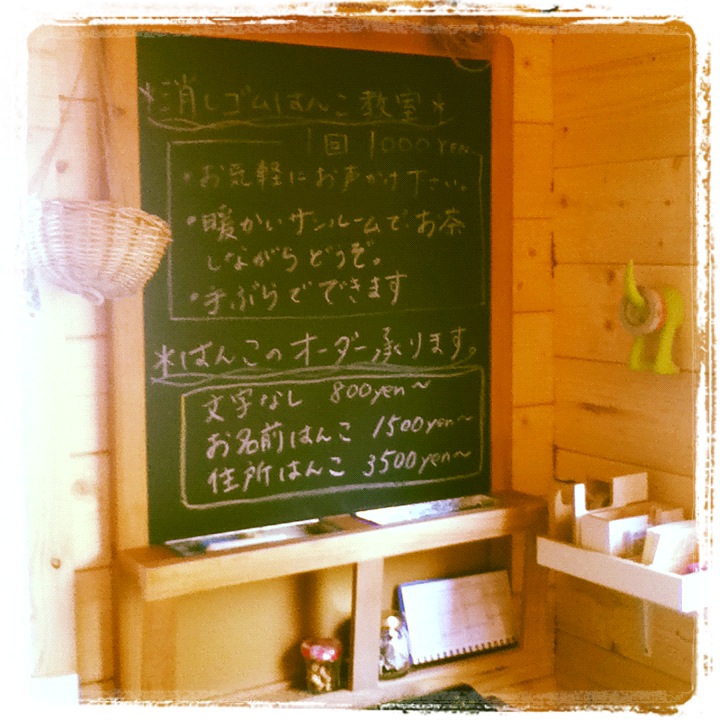 *消しゴムはんこ教室*
1回 1000YEN
・お気軽にお声かけ下さい。
・暖かいサンルームでお茶
しながらどうぞ。
・手ぶらでできます
*はんこのオーダー承ります。
文字なし 800yen~
お名前はんこ 1500yen~
住所はんこ 3500yen~